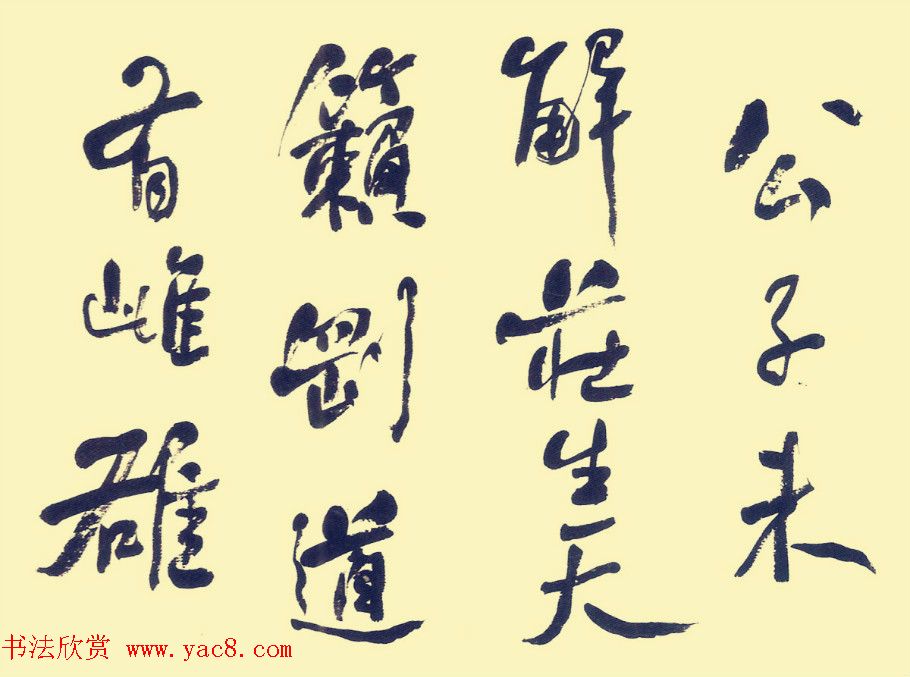 公子未
解莊生天
籟剛道
有雌雄
书法欣赏 www.yac8.com